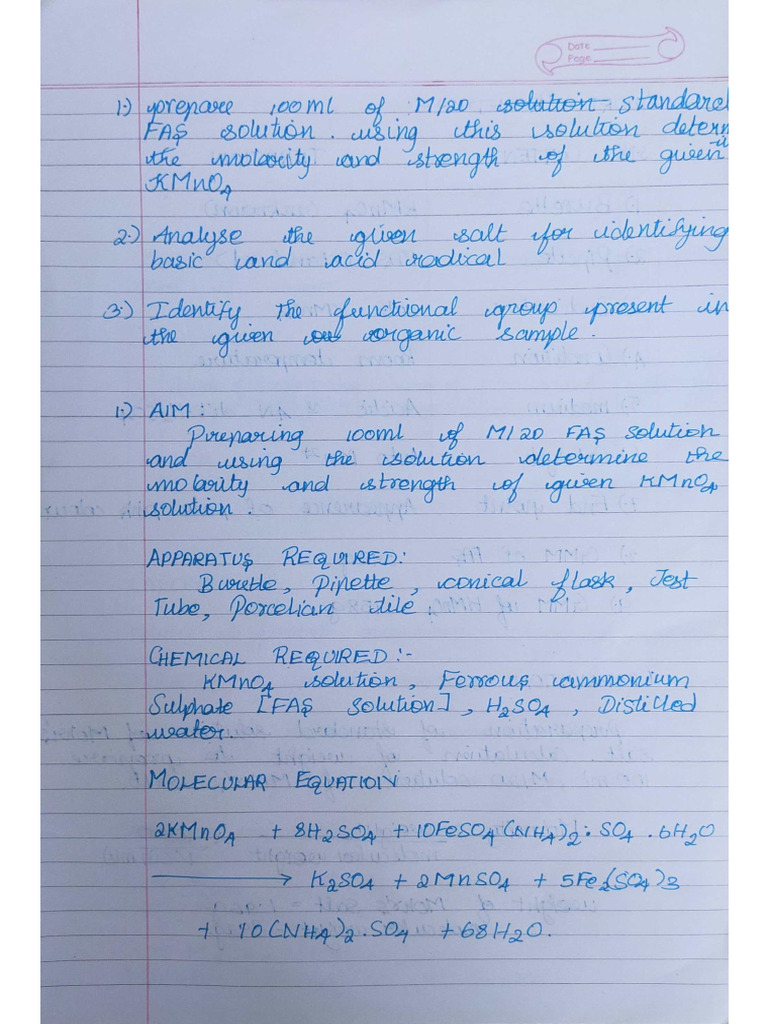 Date
Page
1.) prepare 100ml of M/20 solution standard
FAS solution. using this solution determi
the molarity and strength of the given
KMnO4
2.) Analyse the given salt for identifying
basic and acid radical
3.) Identify the functional group present in
the given organic sample.
1.) AIM:
Preparing 100ml of M/20 FAS solution
and using the solution determine the
molarity and strength of given KMnO4
solution.
APPARATUS REQUIRED:
Burette, Pipette, conical flask, Test
Tube, Porcelian tile,
CHEMICAL REQUIRED:-
KMnO4 solution, Ferrous ammonium
Sulphate [FAS solution], H2SO4, Distilled
water
MOLECULAR EQUATION
2KMnO4 + 8H2SO4 + 10FeSO4(NH4)2.SO4.6H2O
⟶ K2SO4 + 2MnSO4 + 5Fe2(SO4)3
+ 10(NH4)2.SO4 + 68H2O.